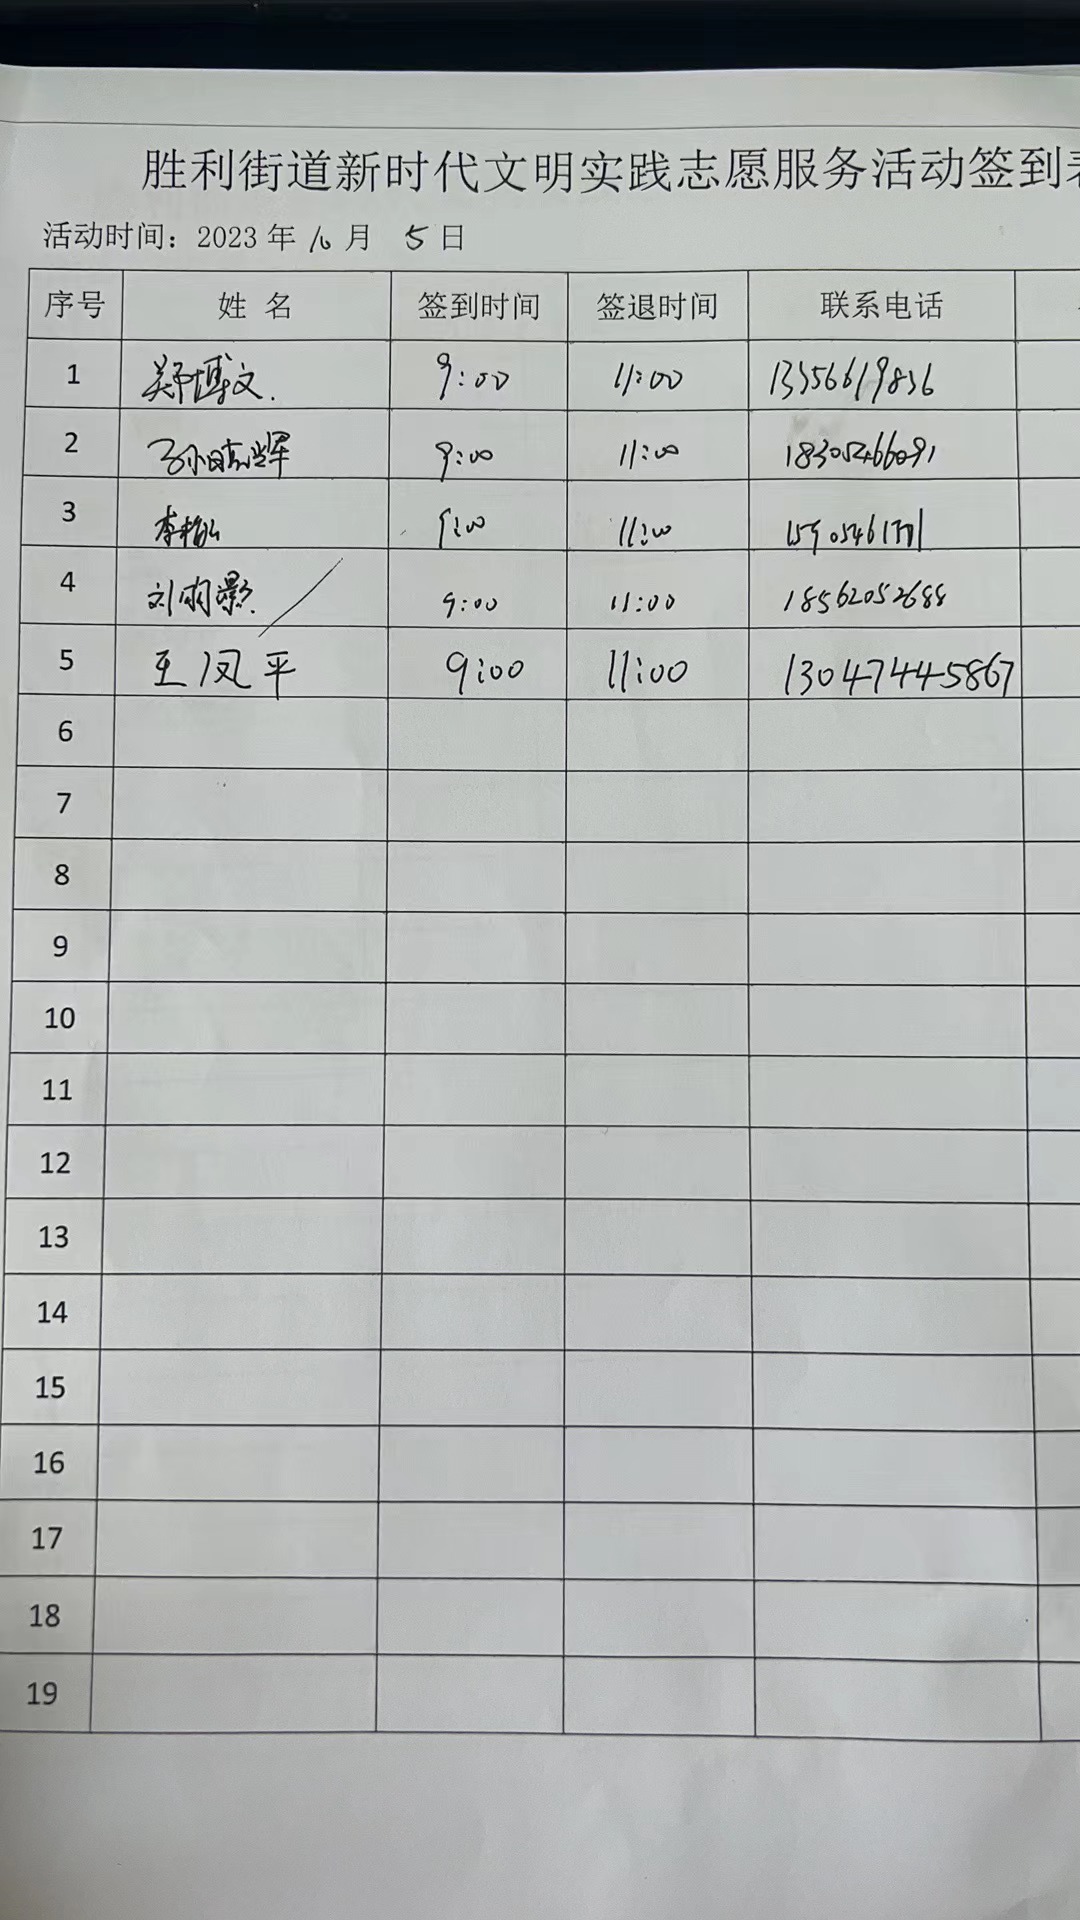 胜利街道新时代文明实践志愿服务活动签到表
活动时间：2023年 10月 5日
序号 姓 名 签到时间 签退时间 联系电话
1 郑博文. 9:00 11:00 13356619836
2 孙晓辉 9:00 11:00 18305466091
3 9:00 11:00
4 刘雨 9:00 11:00 18562052688
5 王凤平 9:00 11:00 13047445867
6
7
8
9
10
11
12
13
14
15
16
17
18
19